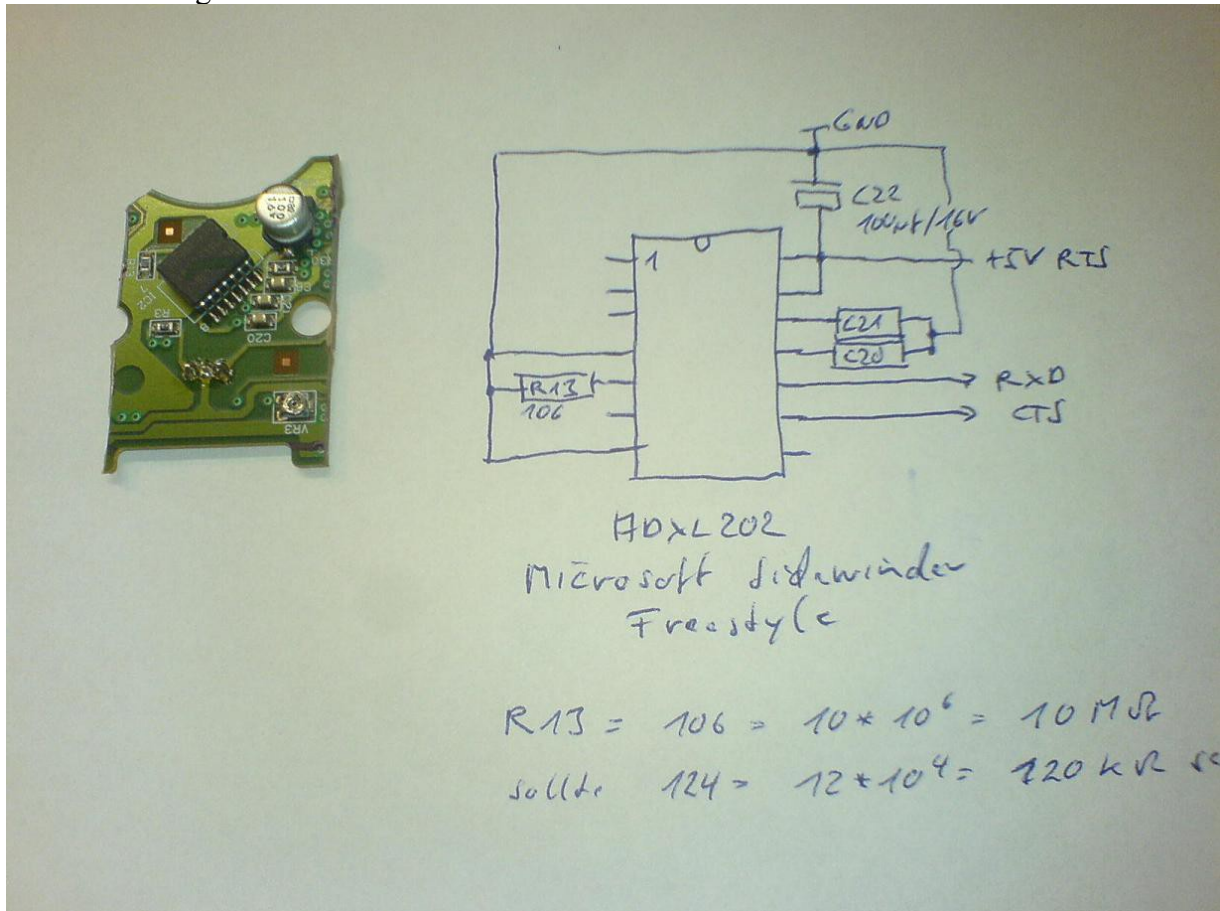 GND
C22
100µF/16V
1
+5V RTS
C21
C20
R13
106
RXD
CTS
ADXL202
Microsoft Sidewinder
Freestyle
R13 = 106 = 10*10⁶ = 10 MΩ
sollte 124 = 12*10⁴ = 120 kΩ
R3
IC2
8
C20
VR3
100
16V